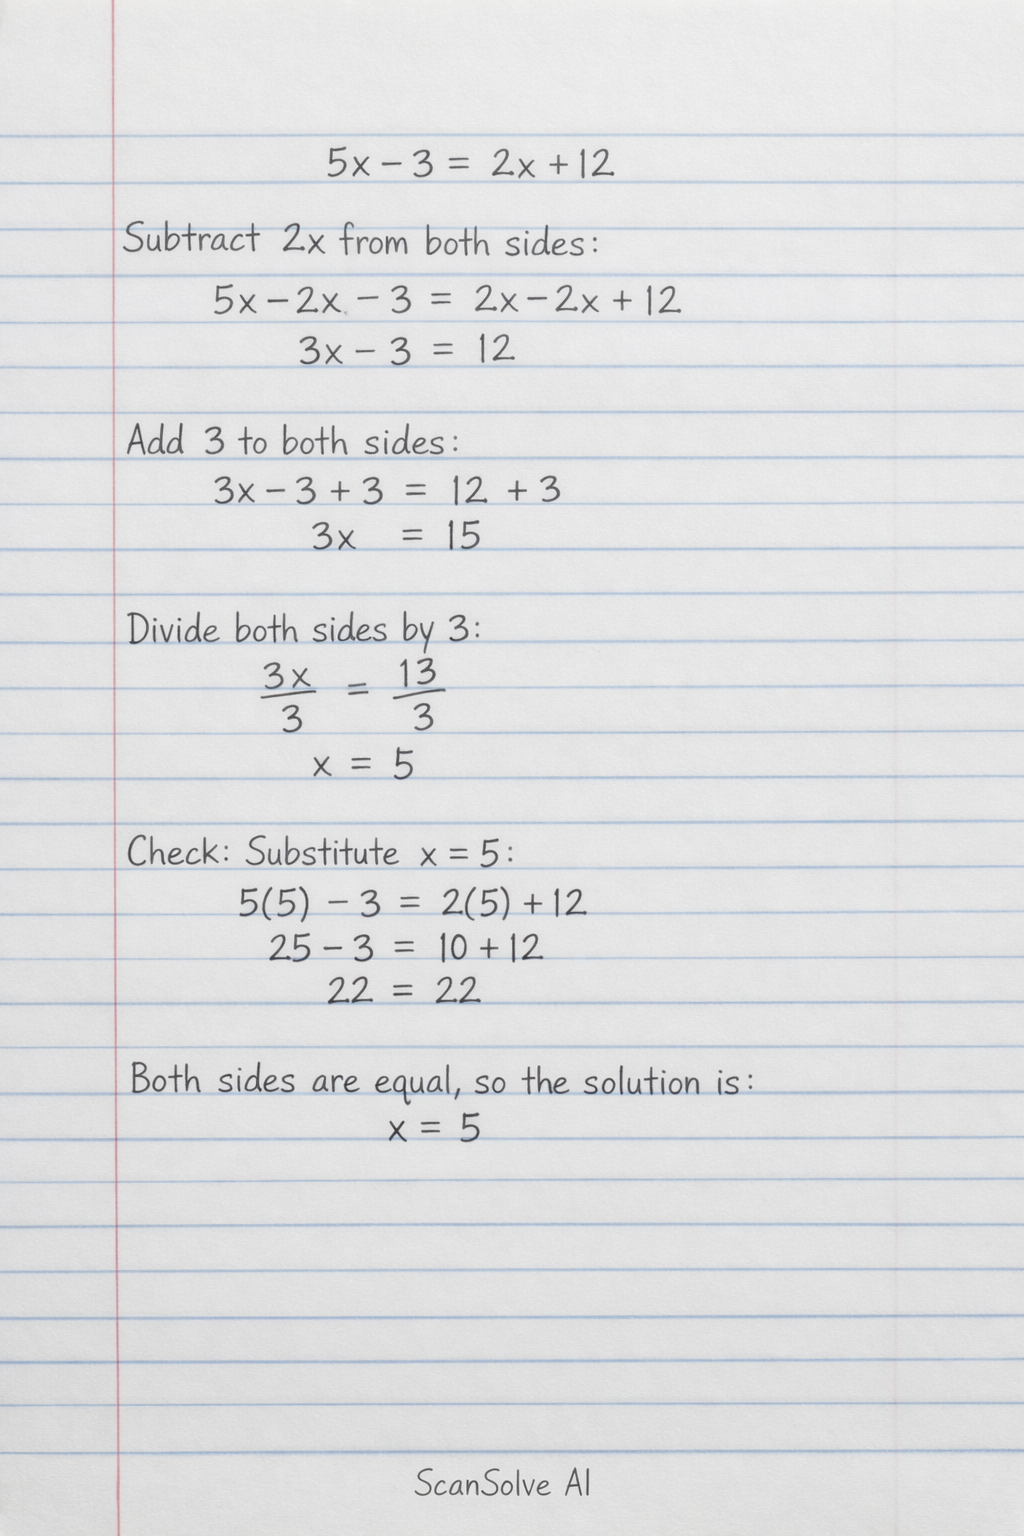 5x − 3 = 2x + 12
Subtract 2x from both sides:
5x − 2x − 3 = 2x − 2x + 12
3x − 3 = 12
Add 3 to both sides:
3x − 3 + 3 = 12 + 3
3x = 15
Divide both sides by 3:
3x/3 = 13/3
x = 5
Check: Substitute x = 5:
5(5) − 3 = 2(5) + 12
25 − 3 = 10 + 12
22 = 22
Both sides are equal, so the solution is:
x = 5
ScanSolve AI